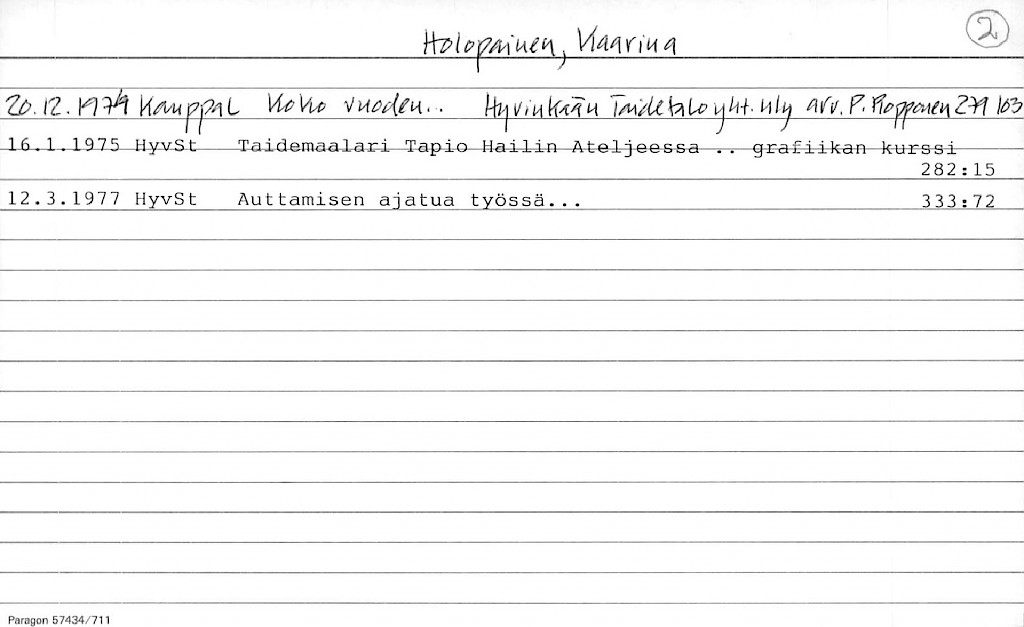 2
Holopainen, Kaarina
20.12.1974 KauppaL Koko vuoden.. Hyvinkään Taidetaloyht. nly arv. P. Ropponen 279 103
16.1.1975 HyvSt Taidemaalari Tapio Hailin Ateljeessa .. grafiikan kurssi
282:15
12.3.1977 HyvSt Auttamisen ajatua työssä... 333:72
Paragon 57434/711